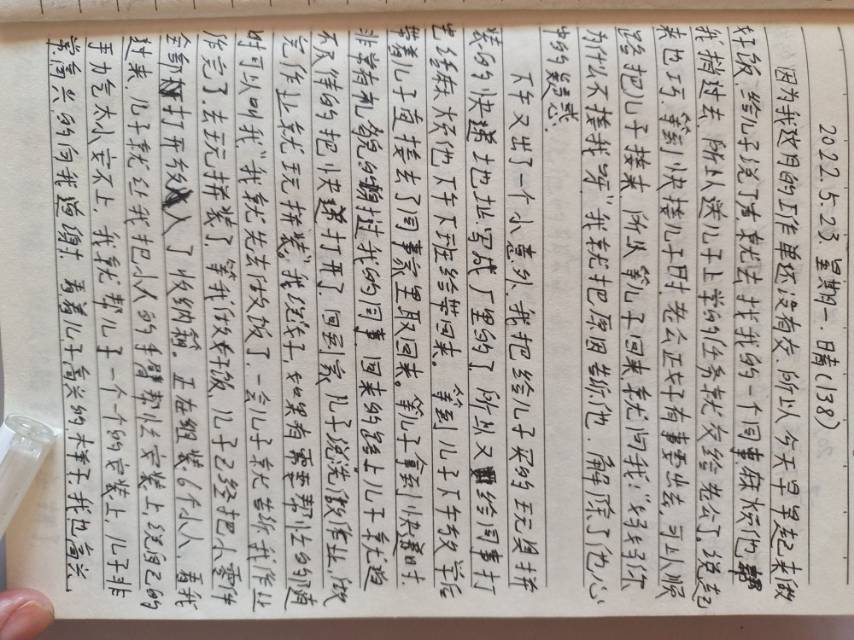 2022.5.23. 星期一. 日青(138)
因为我这月的工作单还没有交, 所以今天早早起来做
好饭, 给儿子说了声就去找我的一个同事麻烦他帮
我捎过去, 所以送儿子上学的任务就交给老公了。说起
来也巧, 等到快接儿子时, 老公正好有事要出去, 可以顺
路把儿子接来, 所以等儿子回来就问我:“妈妈你
为什么不接我呀”我就把原因告诉他, 解除了他心
中的疑惑.
下午又出了一个小意外, 我把给儿子买的玩具拼
装的快递地址写成厂里的了, 所以又给同事打
电话麻烦他下午下班给带回来。等到儿子下午放学后
带着儿子直接去了同事家里取回来。等儿子拿到快递时,
非常有礼貌的谢过我的同事, 回来的路上儿子就迫
不及待的把快递打开了, 回到家, 儿子说先做作业, 做
完作业就玩拼装。”我说好, 如果有需要帮忙的随
时可以叫我”我就先去做饭了, 一会儿子就告诉我作业
作完了, 去玩拼装了, 等我做好饭, 儿子已经把小零件
全部打开放入了收纳箱。正在组装6个小人, 看我
过来, 儿子就让我把小人的手臂帮忙安装上, 说自己的
手力气太小安不上, 我就帮儿子一个个的安装上, 儿子非
常高兴的向我道谢, 看着儿子高兴的样子, 我也高兴.